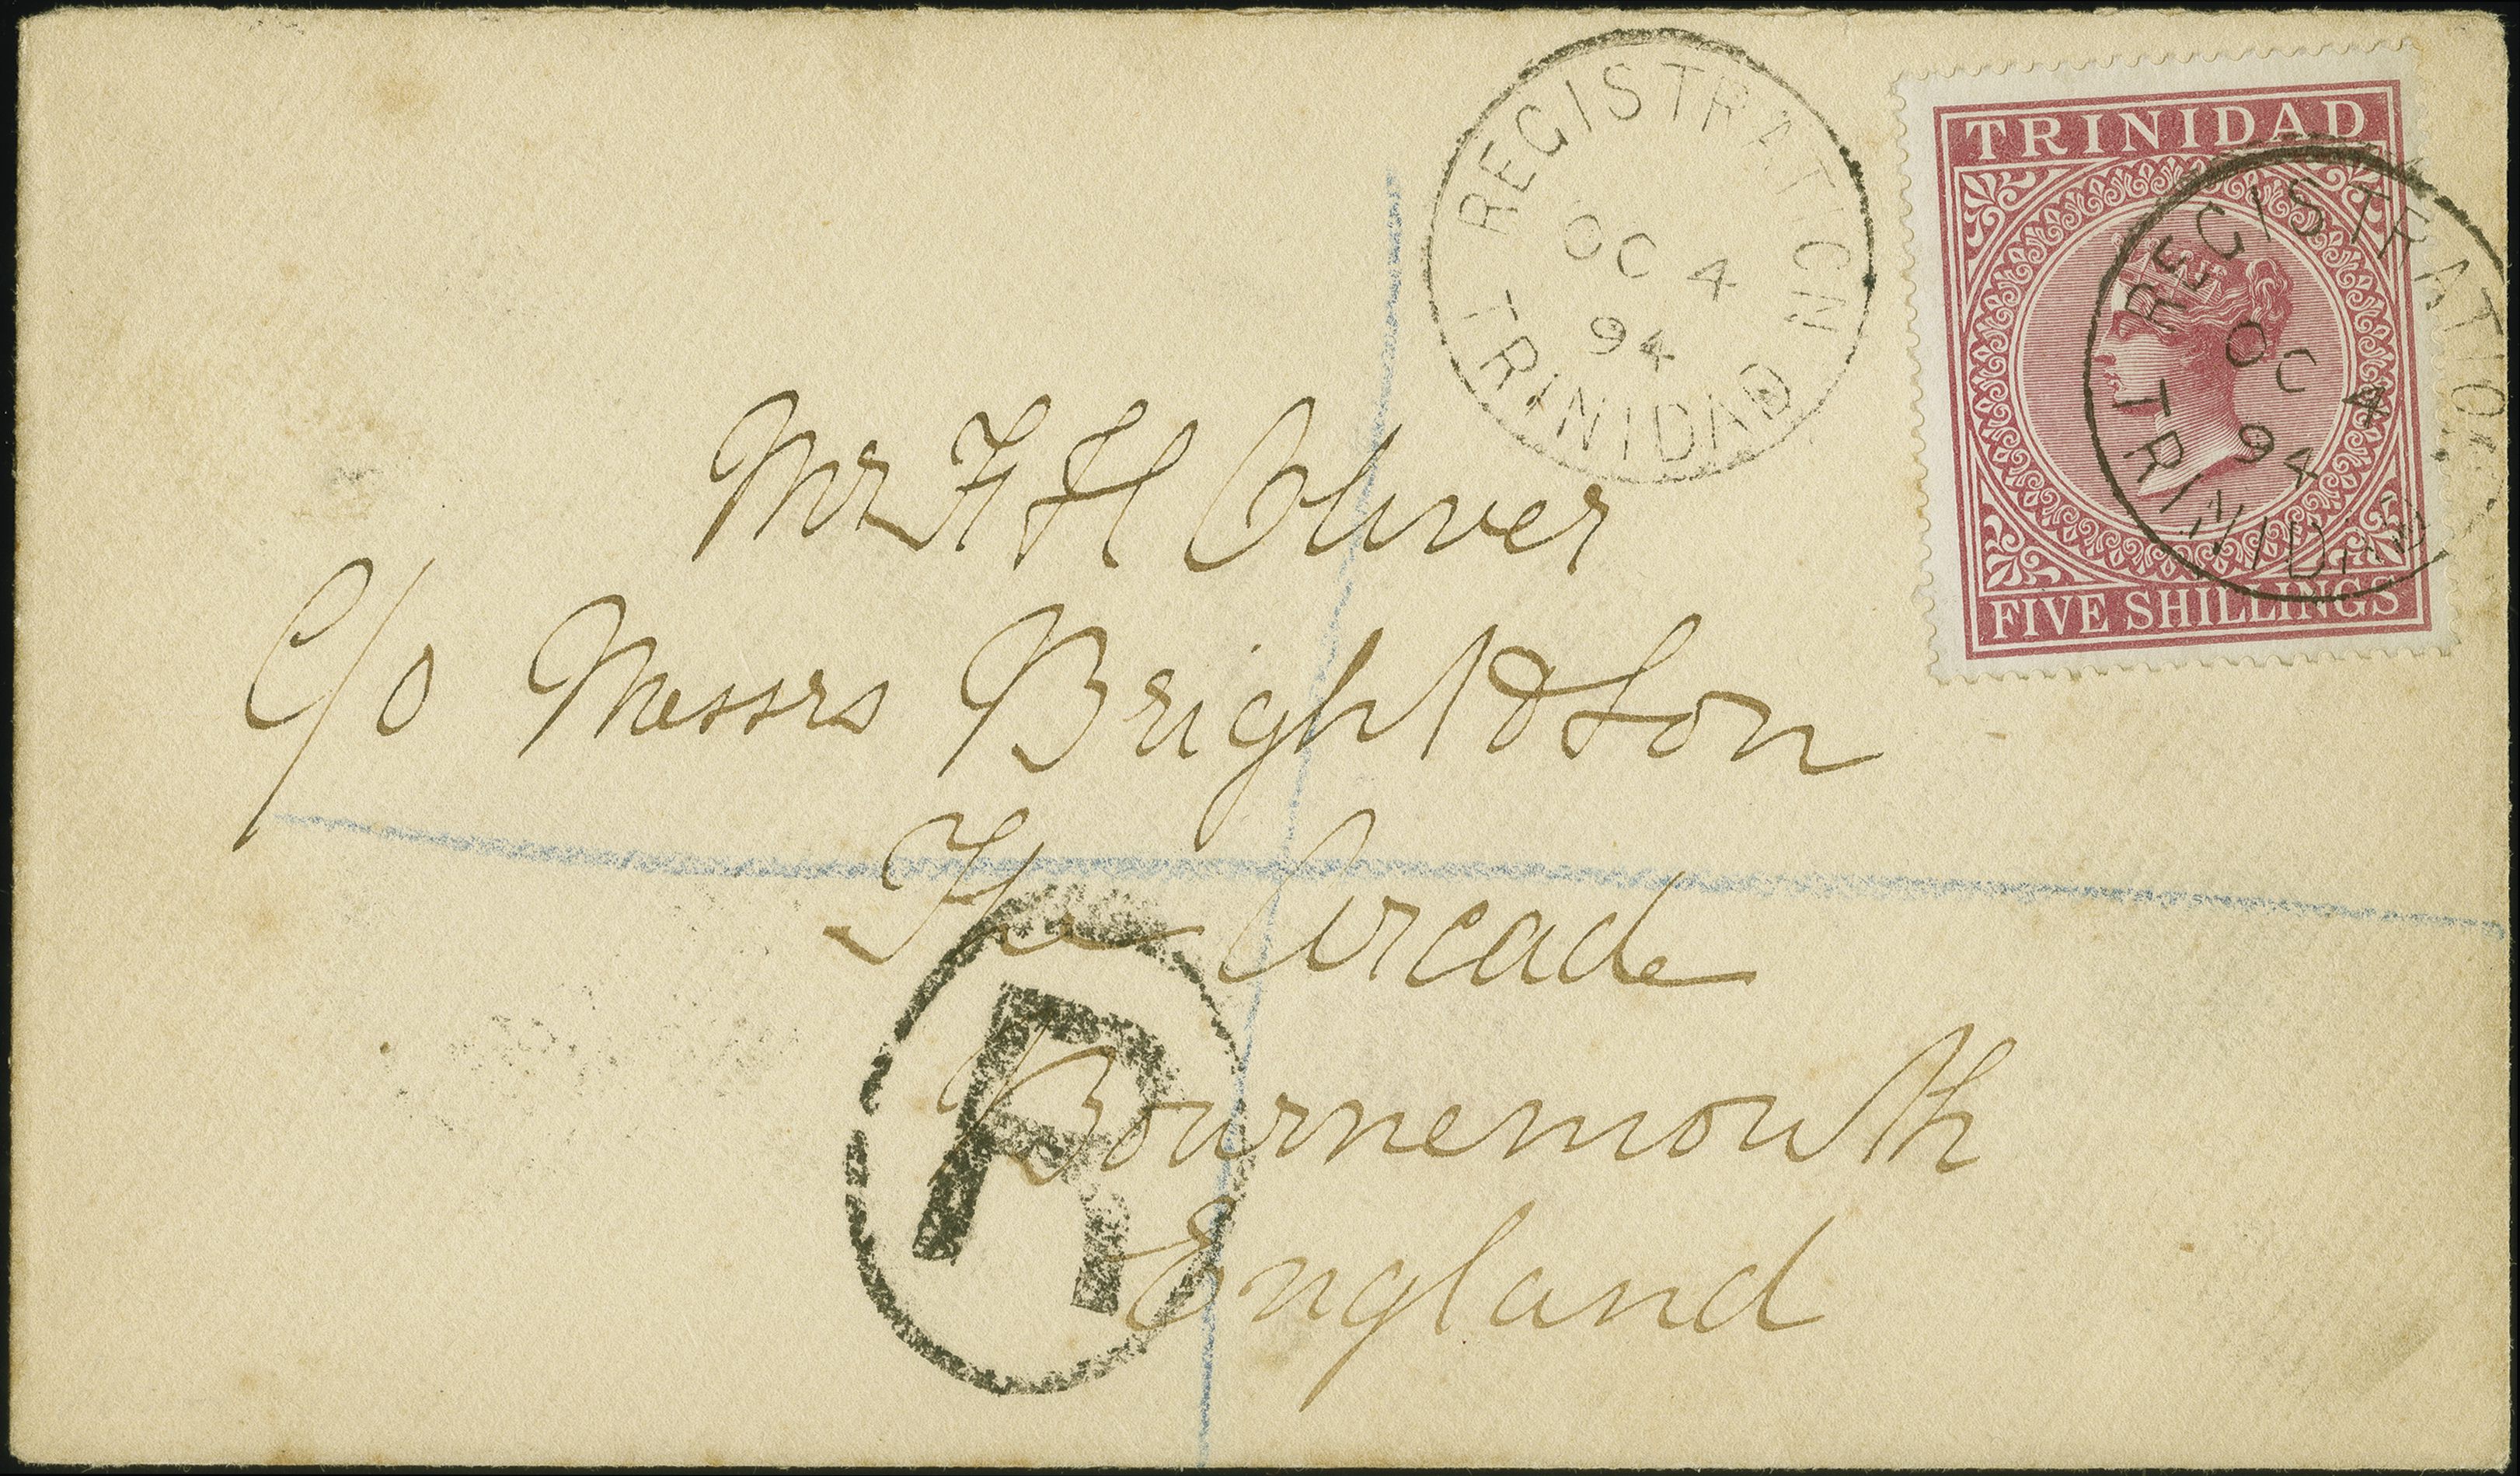 REGISTRATION
OC 4
94
TRINIDAD
TRINIDAD
REGISTRATION
OC 4
94
TRINIDAD
FIVE SHILLINGS
Mr F H Oliver
C/o Messrs Bright & Son
The Arcade
Bournemouth
England
R